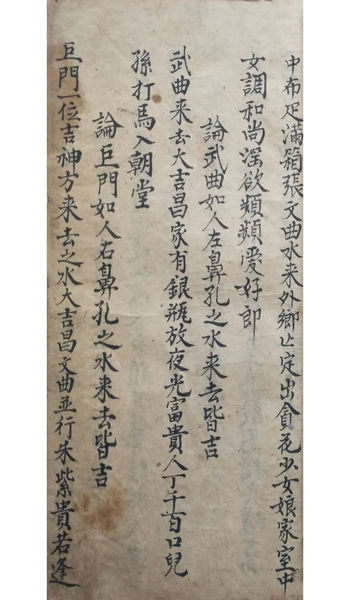 中布疋滿箱張文曲水来外鄉上定出貪花少女娘家室中
女調和尚滛欲頻頻愛好郎
論武曲如人左鼻孔之水来去皆吉
武曲来去大吉昌家有銀瓶放夜光富貴人丁千百口兒
孫打馬入朝堂
論巨門如人右鼻孔之水来去皆吉
巨門一位吉神方来去之水大吉昌文曲並行朱紫貴若逢